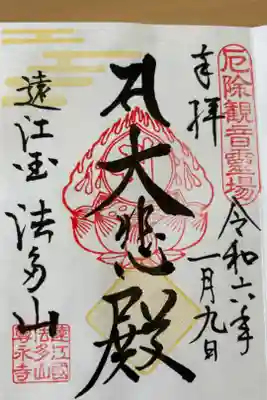 厄除観音霊場
奉拝
令和六年
一月九日
大悲殿
遠江国 法多山
遠江国
法多山
尊永寺